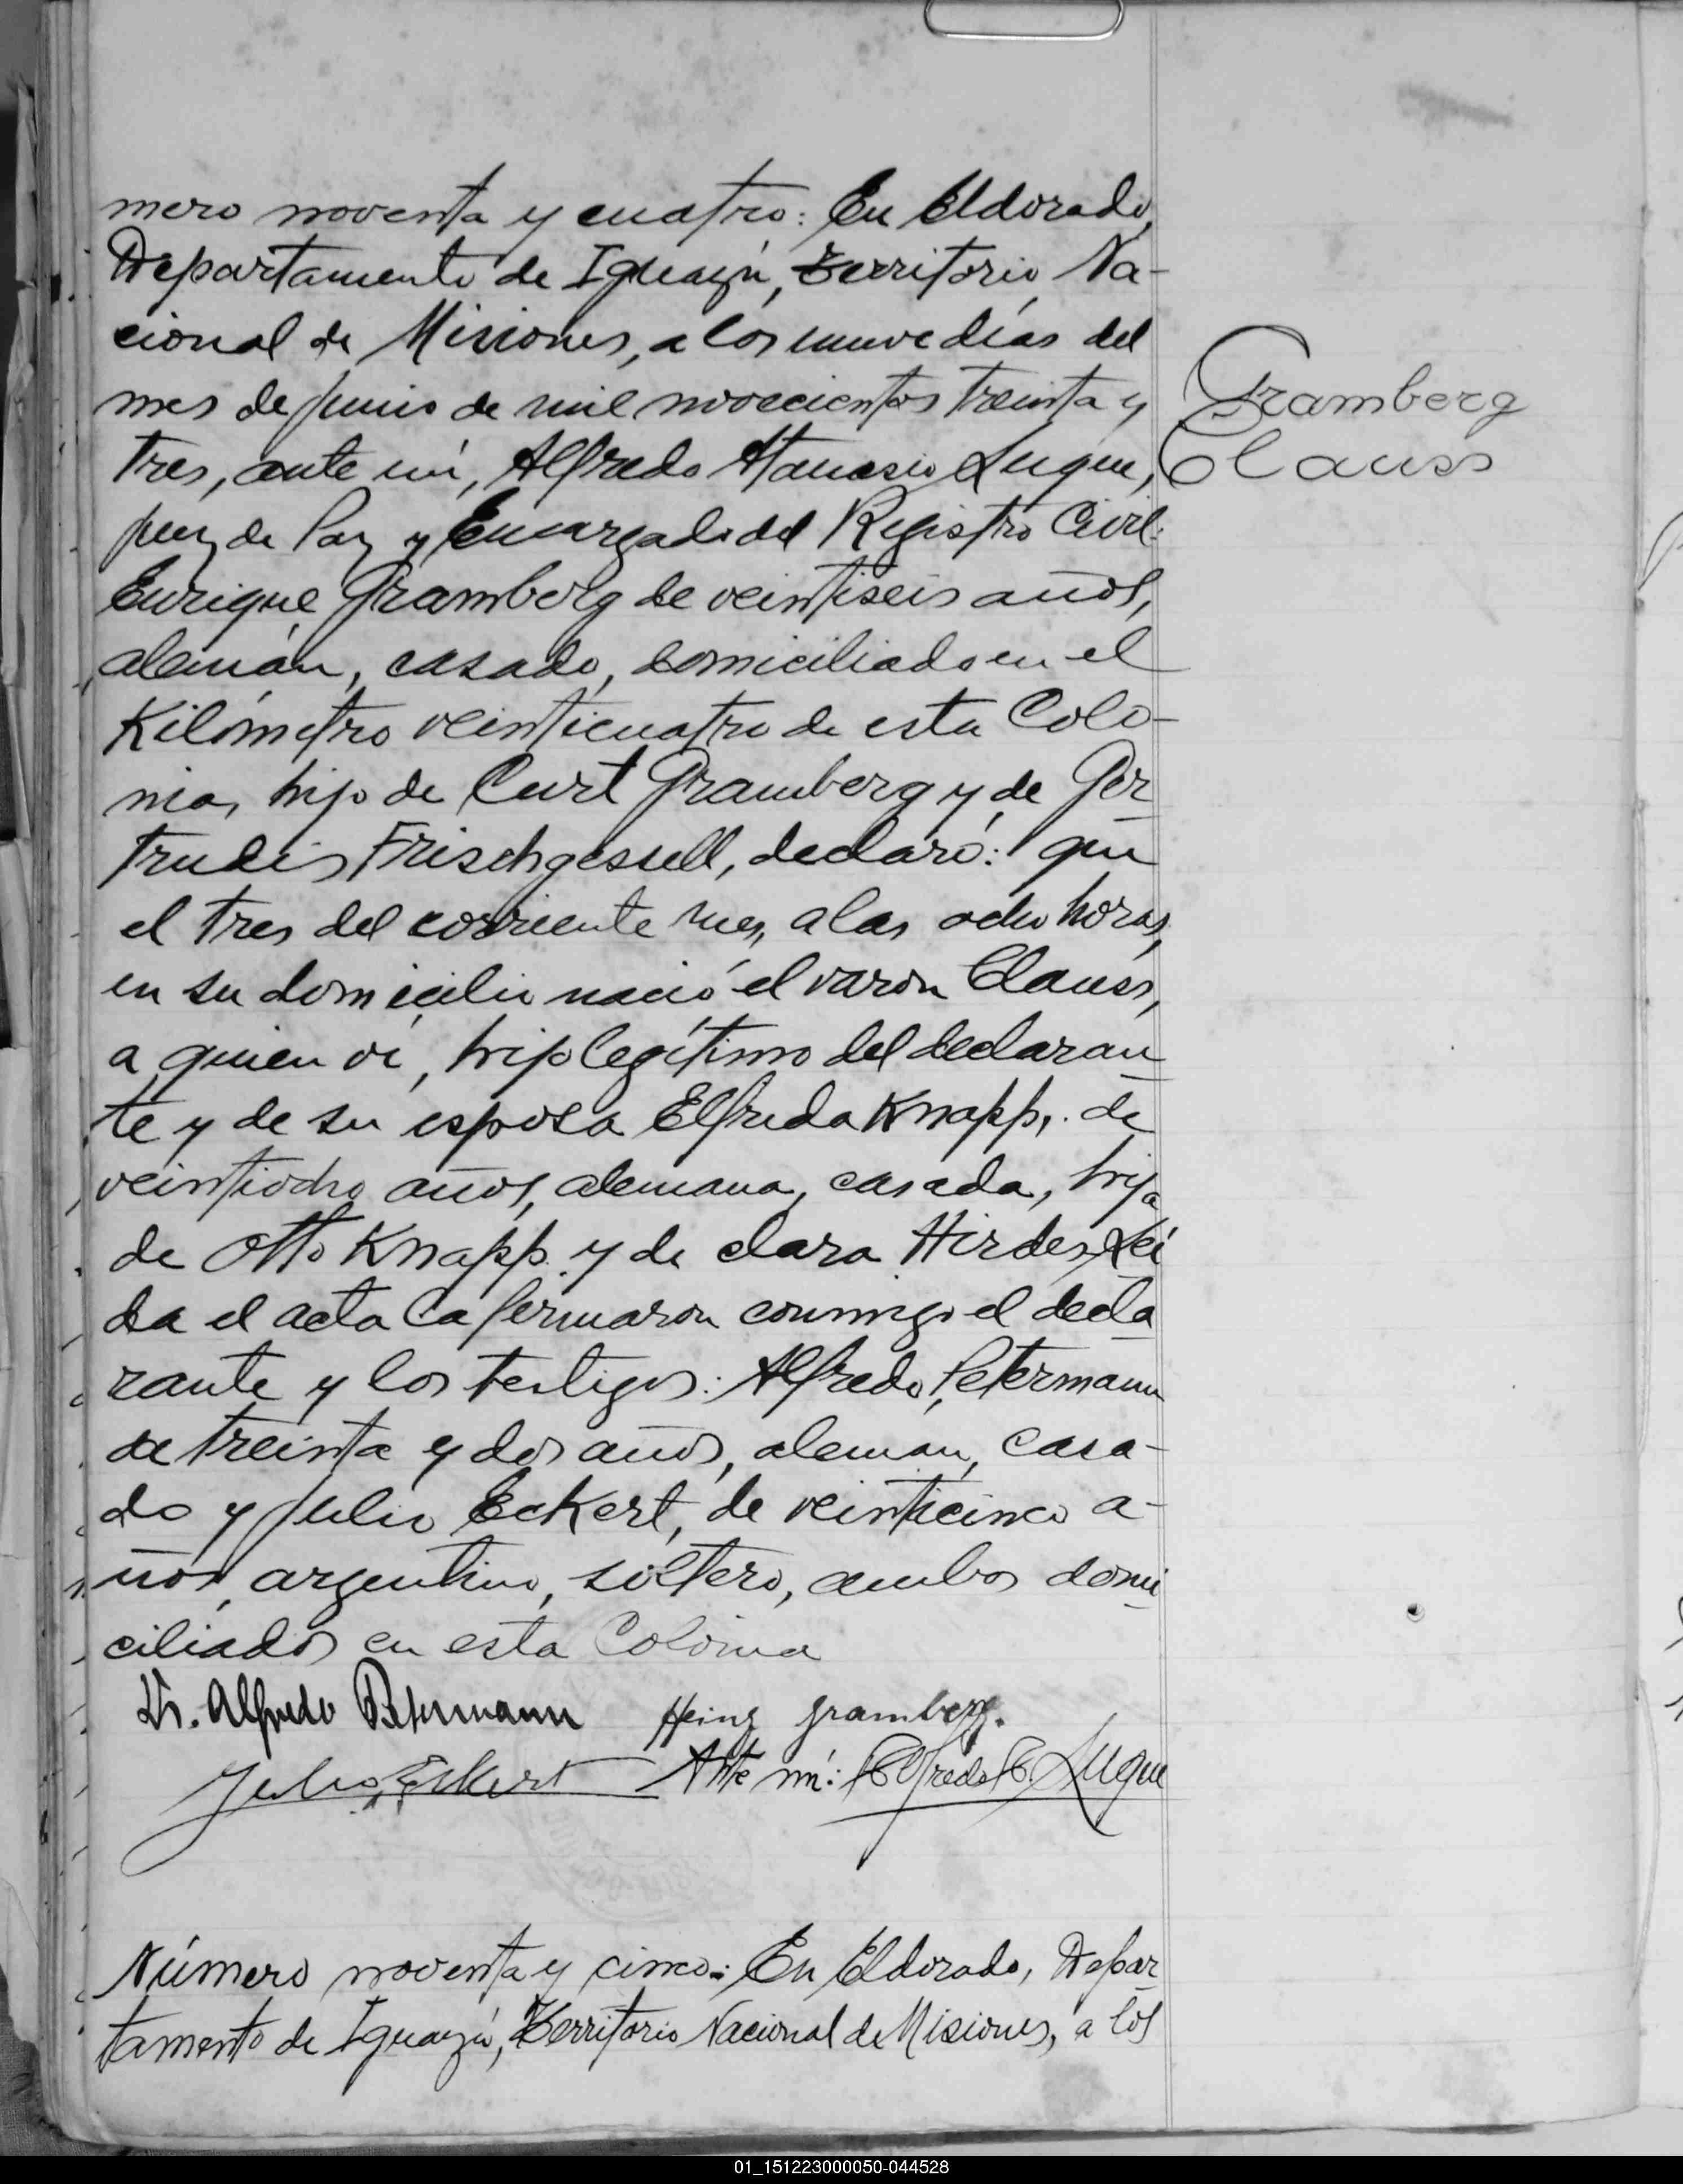 mero noventa y cuatro: En Eldorado,
Departamento de Iguazú, Territorio Na-
cional de Misiones, a los nueve días del
mes de junio de mil novecientos treinta y
tres, ante mí, Alfredo Atanasio Luque,
juez de Paz y Encargado del Registro Civil:
Enrique Gramberg de veintiseis años,
alemán, casado, domiciliado en el
Kilómetro veinticuatro de esta Colo-
nia, hijo de Curt Gramberg y de Ger
trudis Frischgesell, declaró: que
el tres del corriente mes, a las ocho horas,
en su domicilio nació el varon Clauss,
a quien ví, hijo legítimo del declaran
te y de su esposa Elfreda Knapp, de
veintiocho años, alemana, casada, hija
de Otto Knapp y de clara Hirdes, Leí
da el acta la firmaron conmigo el decla
rante y los testigos: Alfredo Petermann
de treinta y dos años, aleman, casa-
do y Julio Eckert, de veinticinco a-
ños, argentino, soltero, ambos domi
ciliados en esta Colonia
Gramberg
Clauss
Dr. Alfredo Petermann Heinz Gramberg.
Julio Eckert Ante mí: Alfredo A. Luque
Número noventa y cinco: En Eldorado, Depar
tamento de Iguazú, Territorio Nacional de Misiones, a los
01_151223000050-044528